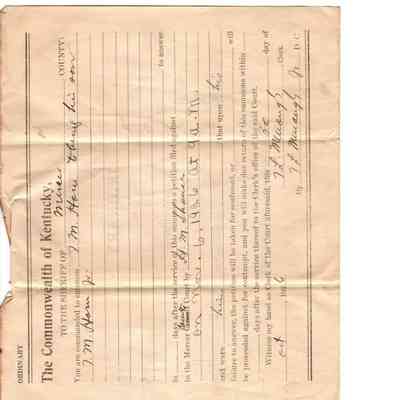 ORDINARY
The Commonwealth of Kentucky,
TO THE SHERIFF OF Mercer COUNTY:
You are commanded to summon J. M. Ham his son
J. M. Ham Jr
to answer
in days after the service of this summons a petition filed against
in the Mercer County Court by
on Nov. 6, 1936 at 9 a.m.
and warn him that upon his will
failure to answer, the petition will be taken for confessed, or
be proceeded against for contempt, and you will make due return of this summons within
days after the service thereof to the Clerk's office of the said Court.
Witness my hand as Clerk of the Court aforesaid, this day of
Oct 1936 Clerk
By Jr D. C.